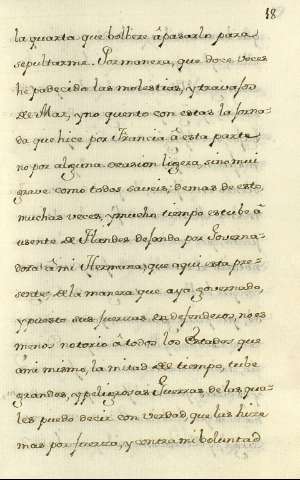 18
la quarta que bolbere â pasarlo para
sepultarme. Por manera, que doce veces
hé padecido las molestias, y travajos
de Mar, y no quento con estas la jorna-
da que hice por Francia â esta parte
no por alguna ocasion ligera, sino mui
grave como todos saveis; demas de esto,
muchas veces, y mucho tiempo estube â
usente de Flandes dejando por Governa-
dora â mi Hermana, que aqui esta pre-
sente, de la manera que aya governado,
y puesto sus fuerzas en defenderos, no es
menos notorio â todos los Estados que
â mi mismo, la mitad de tiempo, tube
grandes, y peligrosas Guerras de las qua-
les puedo decir con verdad, que las hize
mas por fuerza, y contra mi boluntad